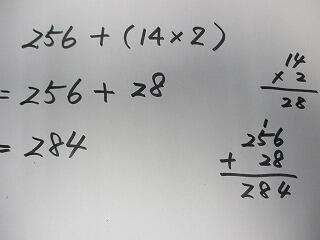 256 + (14 × 2)
= 256 + 28
= 284
14
× 2
28
1
256
+ 28
284